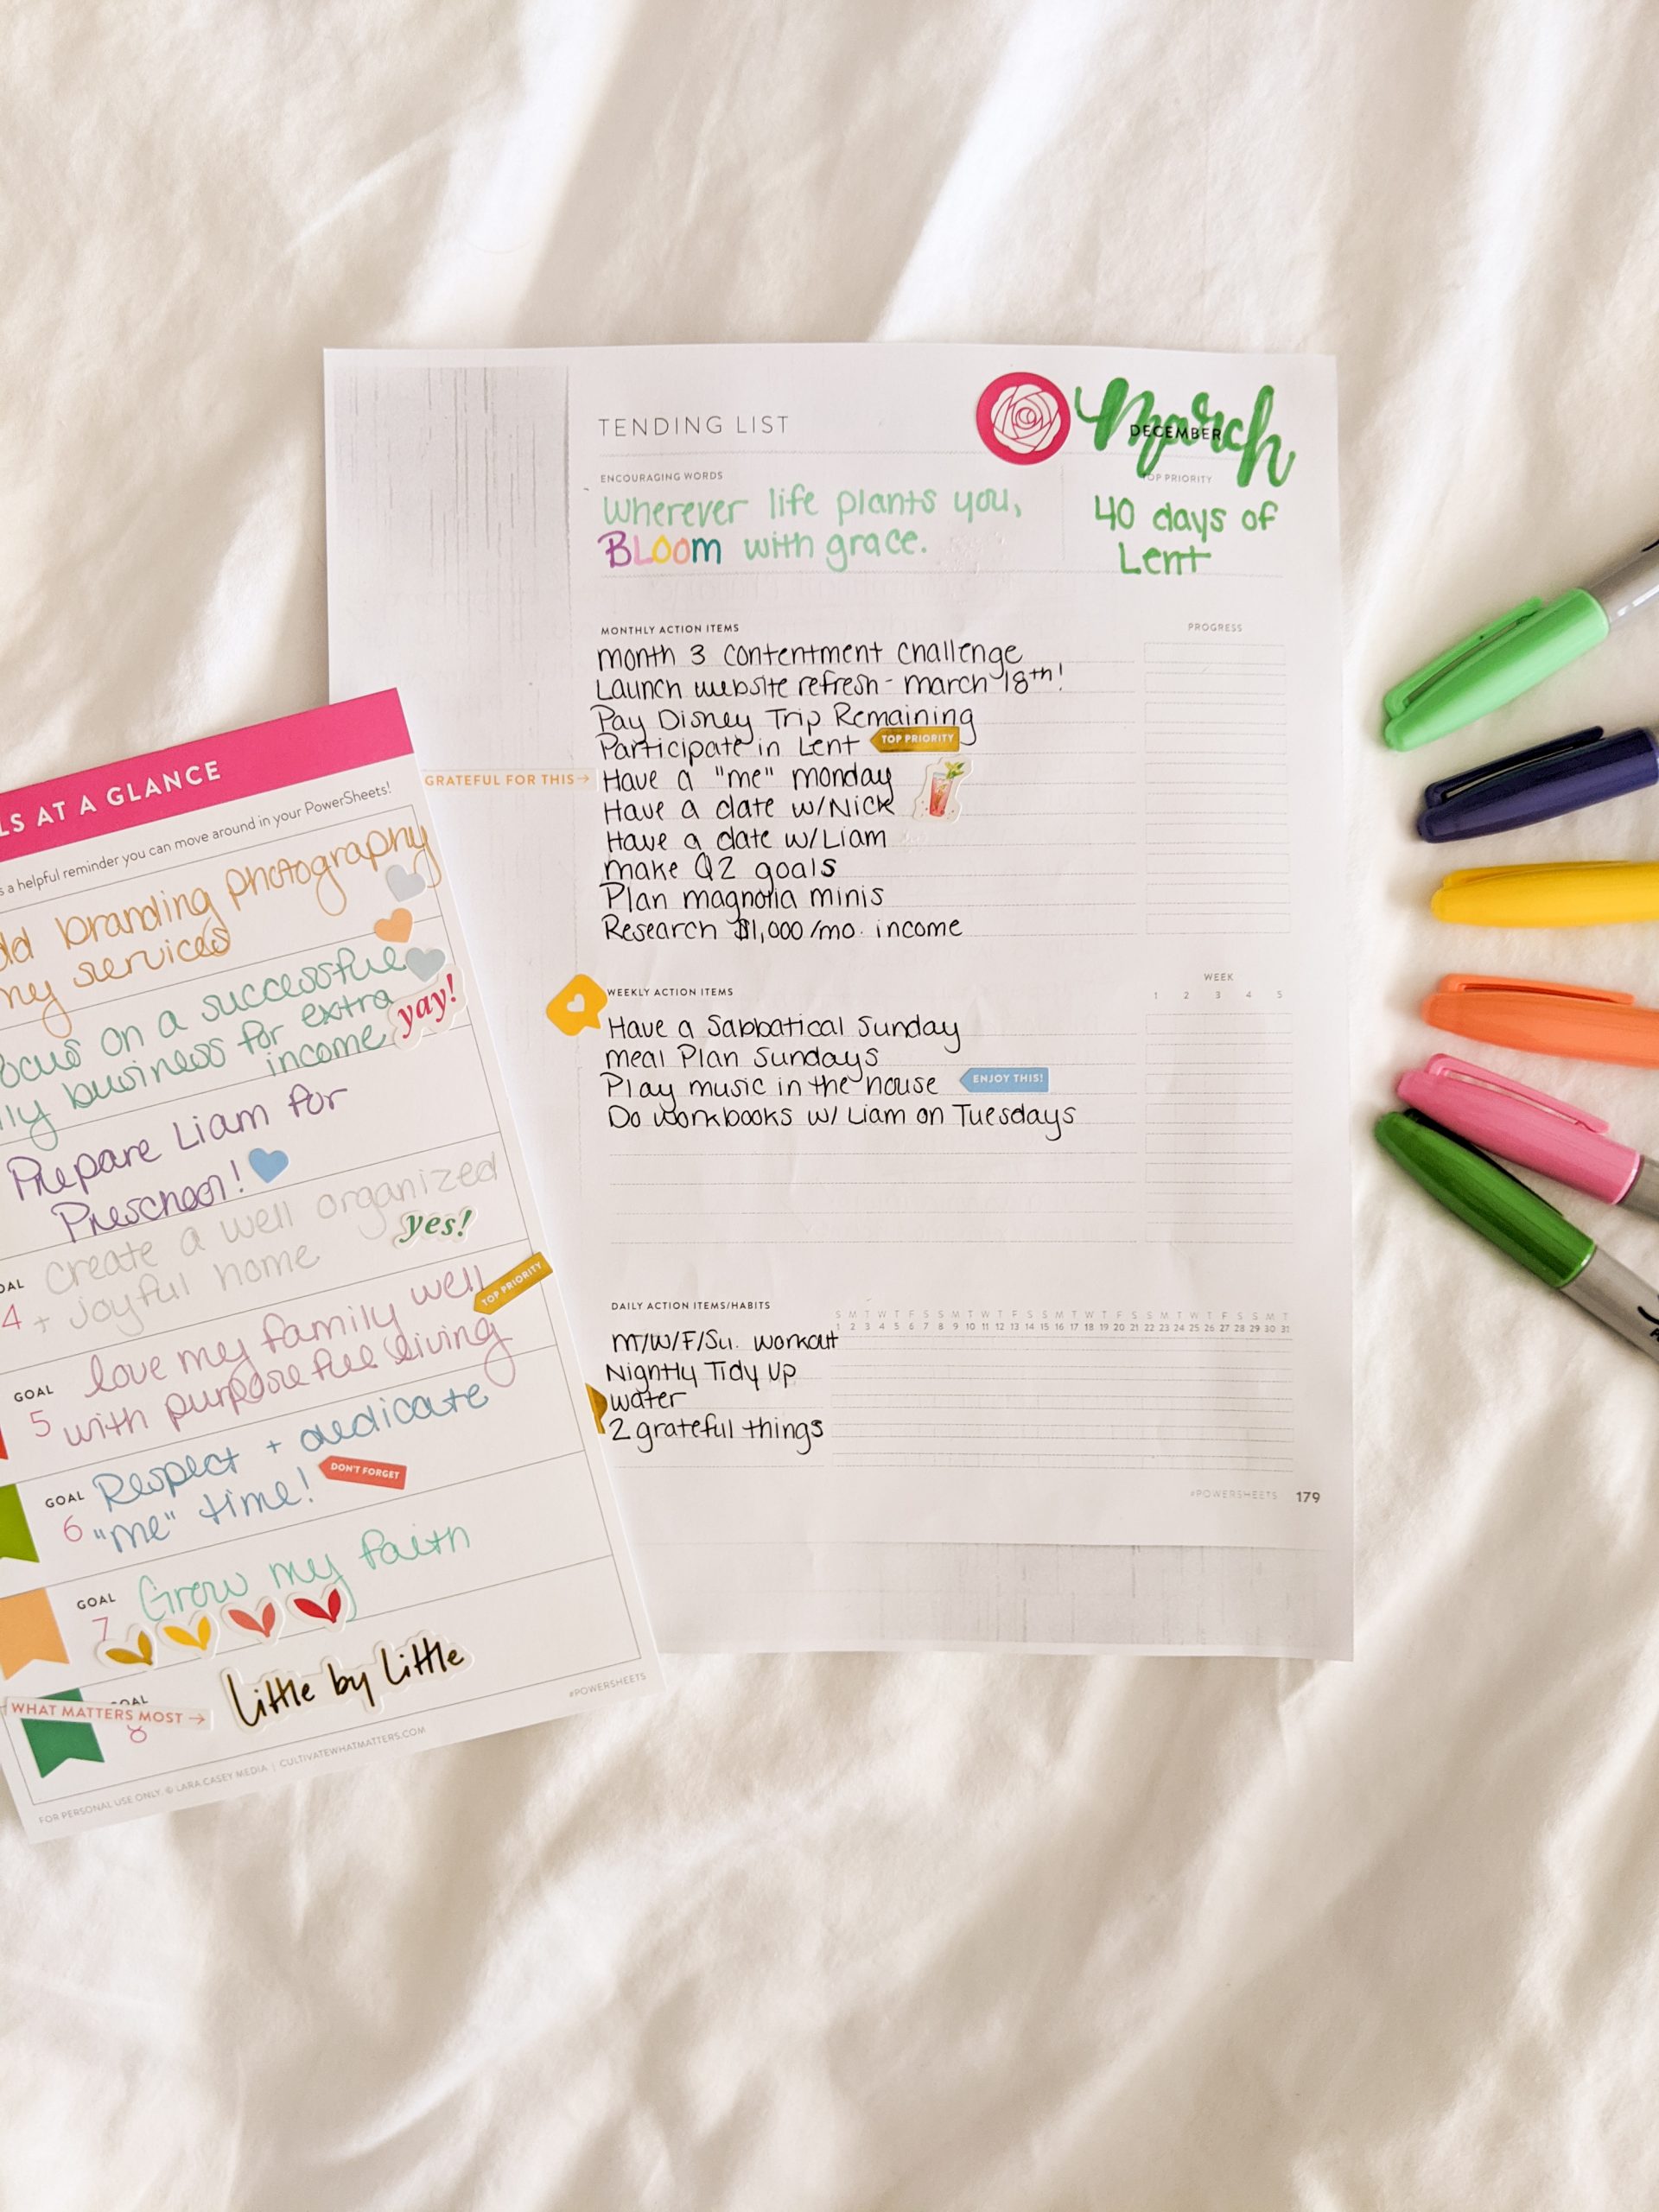 TENDING LIST
March
DECEMBER
ENCOURAGING WORDS
Wherever life plants you,
BLOOM with grace.
TOP PRIORITY
40 days of
Lent
MONTHLY ACTION ITEMS
PROGRESS
month 3 contentment challenge
Launch website refresh - march 18th!
Pay Disney Trip Remaining
Participate in Lent TOP PRIORITY
GRATEFUL FOR THIS → Have a "me" monday
Have a date w/Nick
Have a date w/Liam
make Q2 goals
Plan magnolia minis
Research $1,000/mo. income
WEEKLY ACTION ITEMS
WEEK
1 2 3 4 5
Have a Sabbatical Sunday
meal Plan Sundays
Play music in the house ENJOY THIS!
Do workbooks w/ Liam on Tuesdays
DAILY ACTION ITEMS/HABITS
S M T W T F S S M T W T F S S M T W T F S S M T W T F S S M T
1 2 3 4 5 6 7 8 9 10 11 12 13 14 15 16 17 18 19 20 21 22 23 24 25 26 27 28 29 30 31
M/W/F/Su. workout
Nightly Tidy Up
water
2 grateful things
#POWERSHEETS 179
LS AT A GLANCE
s a helpful reminder you can move around in your PowerSheets!
dd branding photography
my services
ocus on a successful
lly business for extra
income yay!
Prepare Liam for
Preschool!
OAL
4
create a well organized
+ joyful home yes!
GOAL
5
love my family well TOP PRIORITY
with purposefull living
GOAL
6
Respect + dedicate
"me" time! DON'T FORGET
GOAL
7
Grow my faith
WHAT MATTERS MOST →
OAL
8
little by little
#POWERSHEETS
FOR PERSONAL USE ONLY. © LARA CASEY MEDIA | CULTIVATEWHATMATTERS.COM